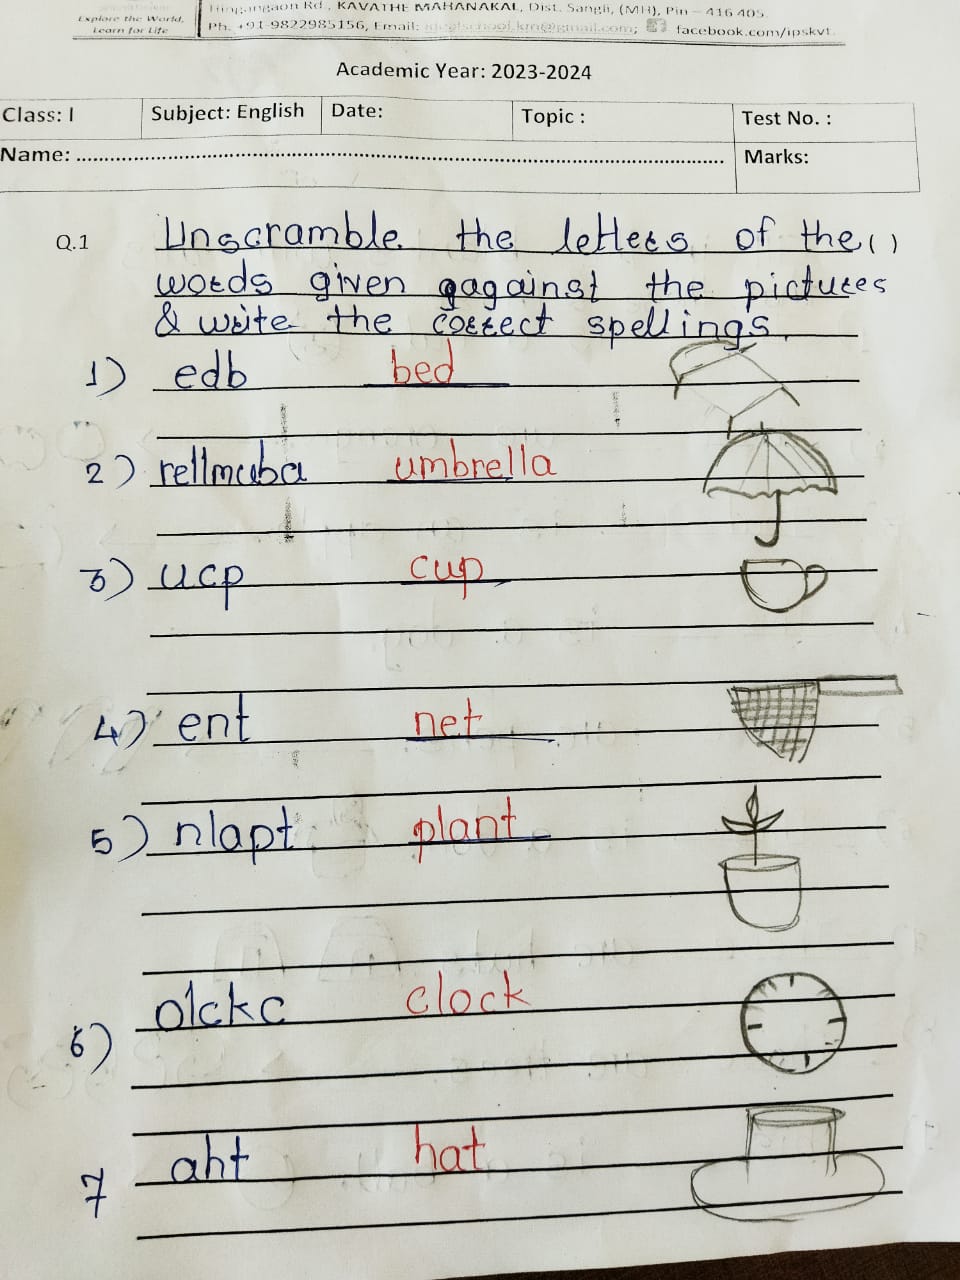 Explore the World,
Learn for Life
Rd., KAVATHE MAHANAKAL, Dist. Sangli, (MH), Pin - 416 405.
Ph. +91-9822985156, Email: facebook.com/ipskvt
Academic Year: 2023-2024
Class: I Subject: English Date: Topic : Test No. :
Name: Marks:
Q.1 Unscramble the letters of the ( )
words given gagainst the pictures
& write the correct spellings.
1) edb bed
2) rellmuba umbrella
3) ucp cup
4) ent net
5) nlapt plant
6) olckc clock
7 aht hat